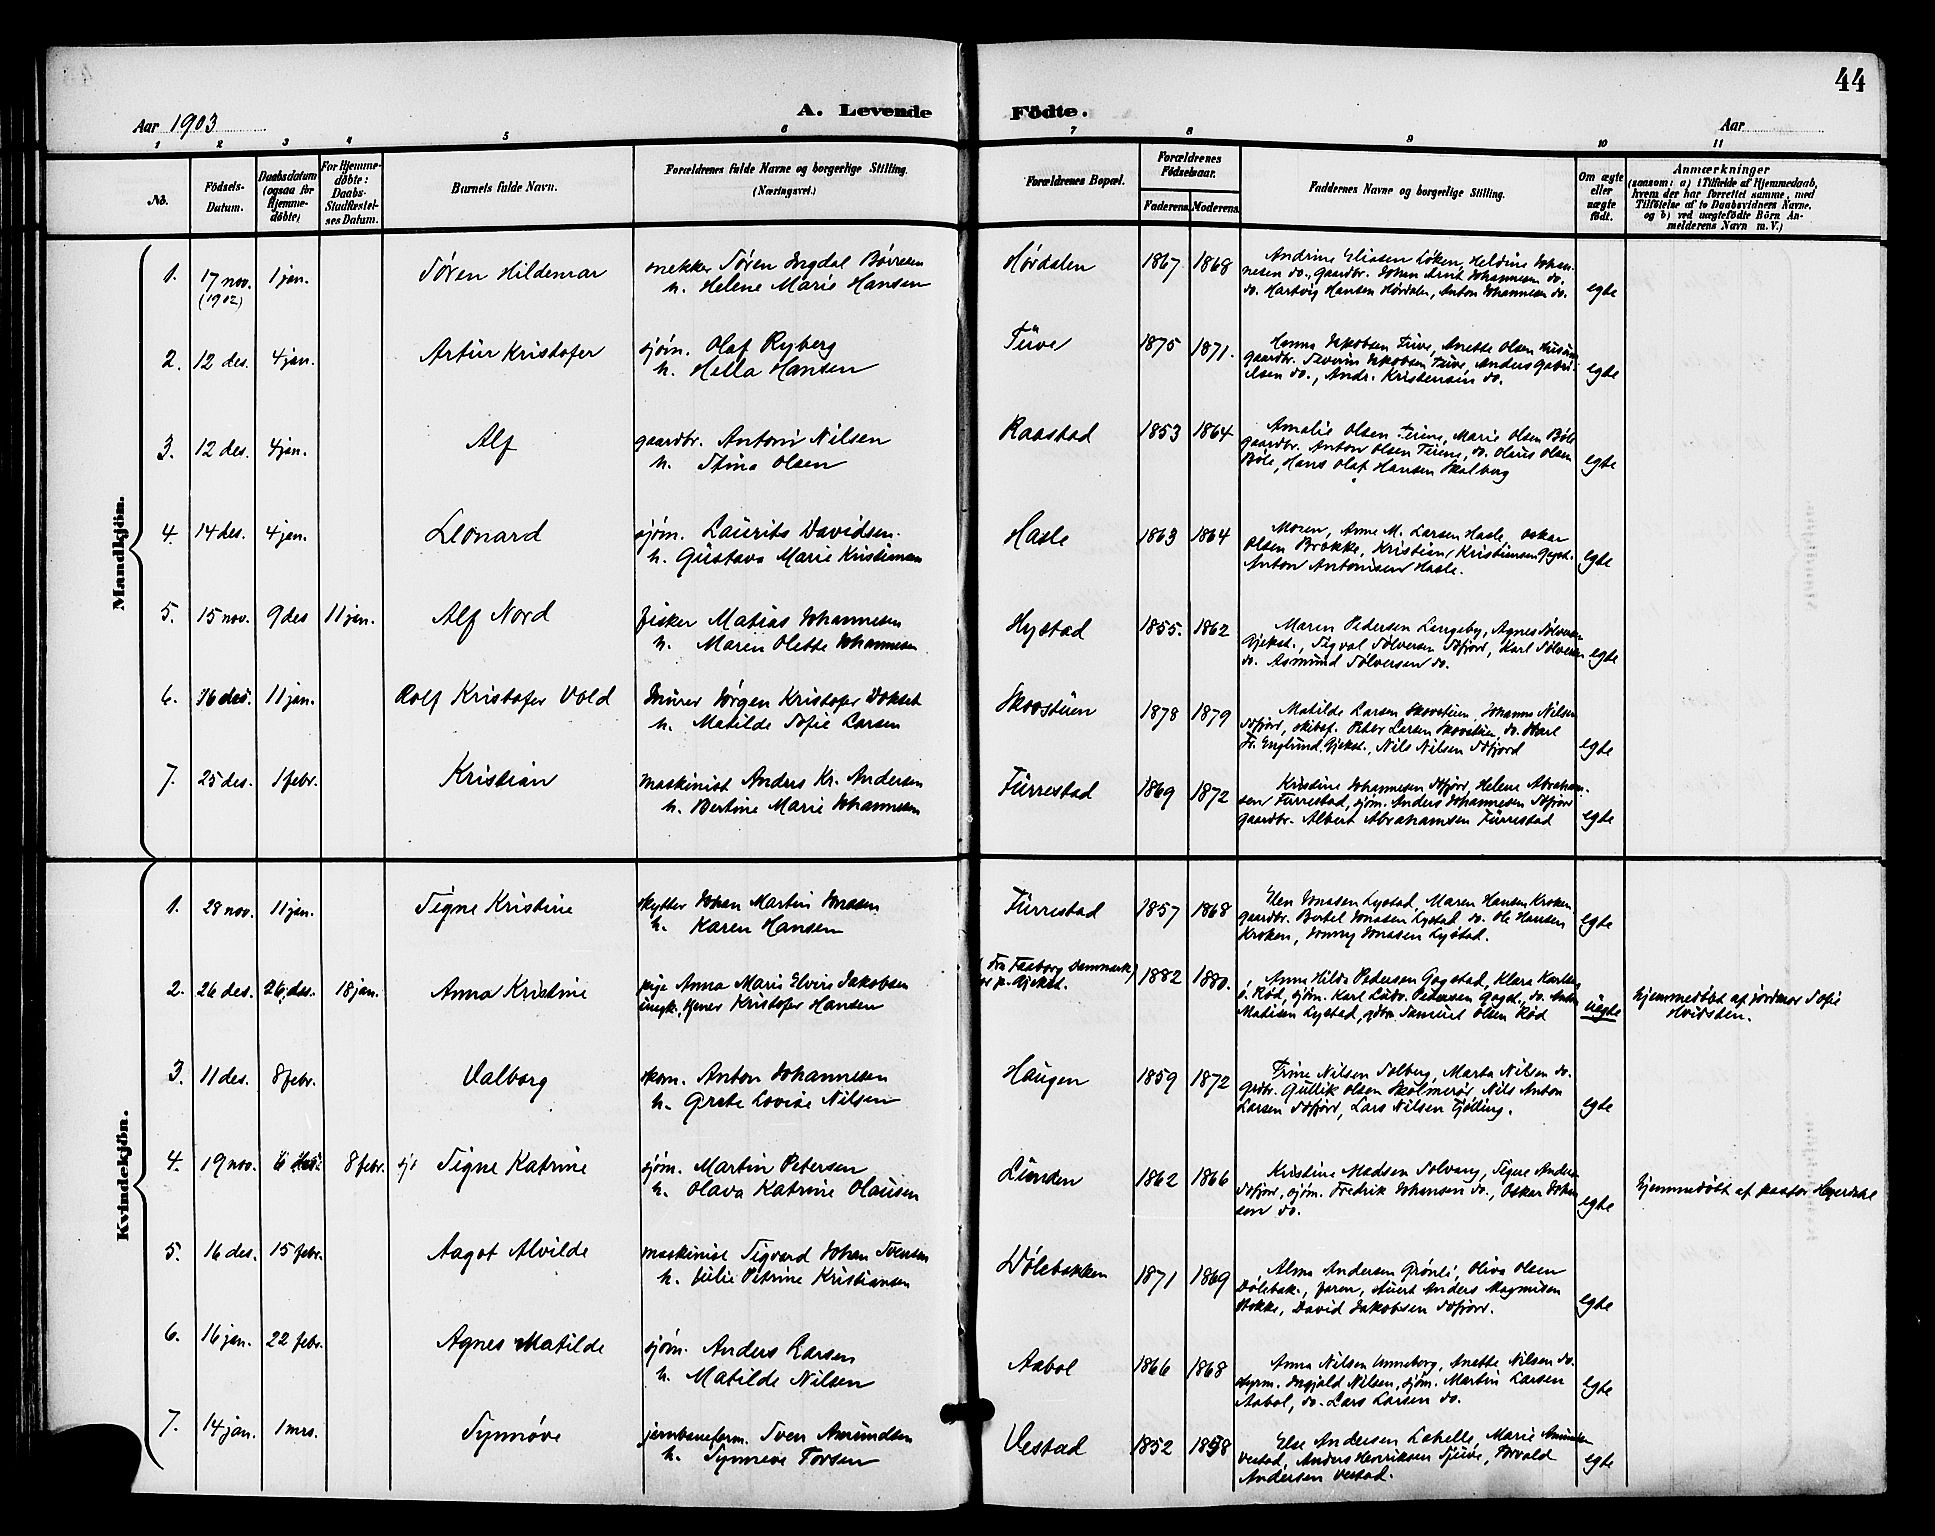 44
Aar 1903
A. Levende Födte.
Aar
1 2 3 4 5 6 7 8 9 10 11
No.
Födsels-Datum.
Daabsdatum (ogsaa for Hjemme-døbte)
For Hjemme-døbte: Daabs-Stadfæstel-ses Datum.
Barnets fulde Navn.
Forældrenes fulde Navne og borgerlige Stilling. (Næringsvei.)
Forældrenes Bopæl.
Forældrenes Fødselsaar.
Faderens Moderens
Faddernes Navne og borgerlige Stilling.
Om ægte eller uægte født.
Anmærkninger
(saasom: a) i Tilfælde af Hjemmedaab,
hvem der har forrettet samme, med
Tilføielse af to Daabsvidners Navne,
og b) ved uægtefødte Börn An-
melderens Navn m. V.)
Mandkjön.
1. 17 nov. (1902) 1 jan. Søren Hildemar snekker Søren Ingdal Børresen
h. Helene Marie Hansen
Hørdalen 1867 1868 Andrine Eliasen Løken, Heldine Johan-
nesen do., gaardbr. Johan Arnt Johannesen do.
do. Hartvig Hansen Hørdalen, Anton Johannesen do. egte
2. 12 des. 4 jan. Artur Kristofer sjøm. Olaf Ryberg
h. Hella Hansen
Tuve 1875 1871. Hanna Jakobsen Tuve, Anette Olsen
gaardbr. Severin Jakobsen Tuve, Anders Gabri-
elsen do., Andr. Kristensen do. egte
3. 12 des. 4 jan. Alf gaardbr. Anton Nilsen
h. Stina Olsen
Raastad 1853 1864 Amalie Olsen Feiene, Marie Olsen Bøle
gaardbr. Anton Olsen Feiene, do. Hans Olsen
Bøle, Hans Olaf Hansen Skalberg egte
4. 14 des. 4 jan. Leonard sjøm. Laurits Davidsen.
h. Gustava Marie Kristiansen
Hasle 1863 1864 Moren, Anne M. Larsen Hasle, Oskar
Olsen Brokke, Kristian Kristiansen Gjekst.
Anton Antonisen Hasle. egte
5. 15 nov. 9 des 11 jan. Alf Nord fisker Matias Johannesen
h. Maren Olette Johannesen
Hystad 1855. 1862 Maren Pedersen Langeby, Agnes Sølversen
Gjekst., Sigval Sølversen Sdfjord, Karl Sølversen
do. Asmund Sølversen do. egte
6. 16 des. 11 jan. Rolf Kristofer Vold murer Jørgen Kristofer Dokset
h. Matilde Sofie Larsen
Skovstuen 1878 1879 Matilde Larsen Skovstuen, Johanne Nilsen
Sdfjord, skibsf. Peter Larsen Skovstuen, do. Karl
Fr. Englund Gjekst., Nils Nilsen Sdfjord egte
7. 25 des. 1 febr. Kristian maskinist Anders Kr. Andersen
h. Bertine Marie Johannesen
Furrestad 1869 1872 Kristine Johannesen Sdfjord, Helene Abraham-
sen Furrestad, sjøm. Anders Johannesen Sdfjord
gaardbr. Albert Abrahamsen Furrestad egte
Kvindekjön.
1. 28 nov. 11 jan. Signe Kristine skytter Johan Martin Jonasen
h. Karen Hansen
Furrestad 1857 1868 Elen Jonasen Lystad, Maren Hansen Kroken
gaardbr. Bertel Jonasen Lystad, do. Ole Hansen
Kroken, Jonny Jonasen Lystad. egte
2. 26 des. 26 des. 18 jan. Anna Kristine pige Anna Marie Elvire Jakobsen
ungk., tjener Kristofer Hansen
(Fra Faaborg Danmark) p. Gjekst. 1882 1880. Anna Hilda Pedersen Gogstad, Klara Karlsen
Rød, sjøm. Karl Ludv. Pedersen Gogst., do. Anton
Madisen Lystad, grdbr. Samuel Olsen Rød uegte hjemmedøbt af jordmor Sofie
Hvidsten.
3. 11 des. 8 febr. Valborg skom. Anton Johannesen
h. Grete Lovise Nilsen
Haugen 1859 1872 Trine Nilsen Solberg, Marta Nilsen do.
grdbr. Gullik Olsen Skolmerød, Nils Anton
Larsen Sdfjord, Lars Nilsen Tjølling. egte
4. 19 nov. 8 febr. Signe Katrine sjøm. Martin Petersen
h. Olava Katrine Olausen
Lunden 1862 1866 Kristine Madsen Solvang, Signe Anders
Sdfjord, sjøm. Fredrik Johansen do., Oskar Johan-
sen do. egte hjemmedøbt af pastor Heyerdahl
5. 16 des. 15 febr. Aagot Alvilde maskinist Sigvard Johan Svensen
h. Julie Petrine Kristiansen
Dølebakken 1871 1869 Alma Andersen Grønli, Oliva Olsen
Dølebak., faren, stuert Anders Magnusen
Stokke, David Jakobsen Sdfjord. egte
6. 16 jan. 22 febr. Agnes Matilde sjøm. Anders Larsen
h. Matilde Nilsen
Aabol 1866 1868 Anna Nilsen Unneberg, Anette Nilsen do.
styrm. Ingjald Nilsen, sjøm. Martin Larsen
Aabol, do. Lars Larsen do. egte
7. 14 jan. 1 mrs. Synnøve jernbaneform. Sven Amundsen
h. Synneve Torsen
Vestad 1852 1858 Else Andersen Lahelle, Marie Amundsen
Vestad, Anders Henriksen Tjuve, Torvald
Andersen Vestad. egte